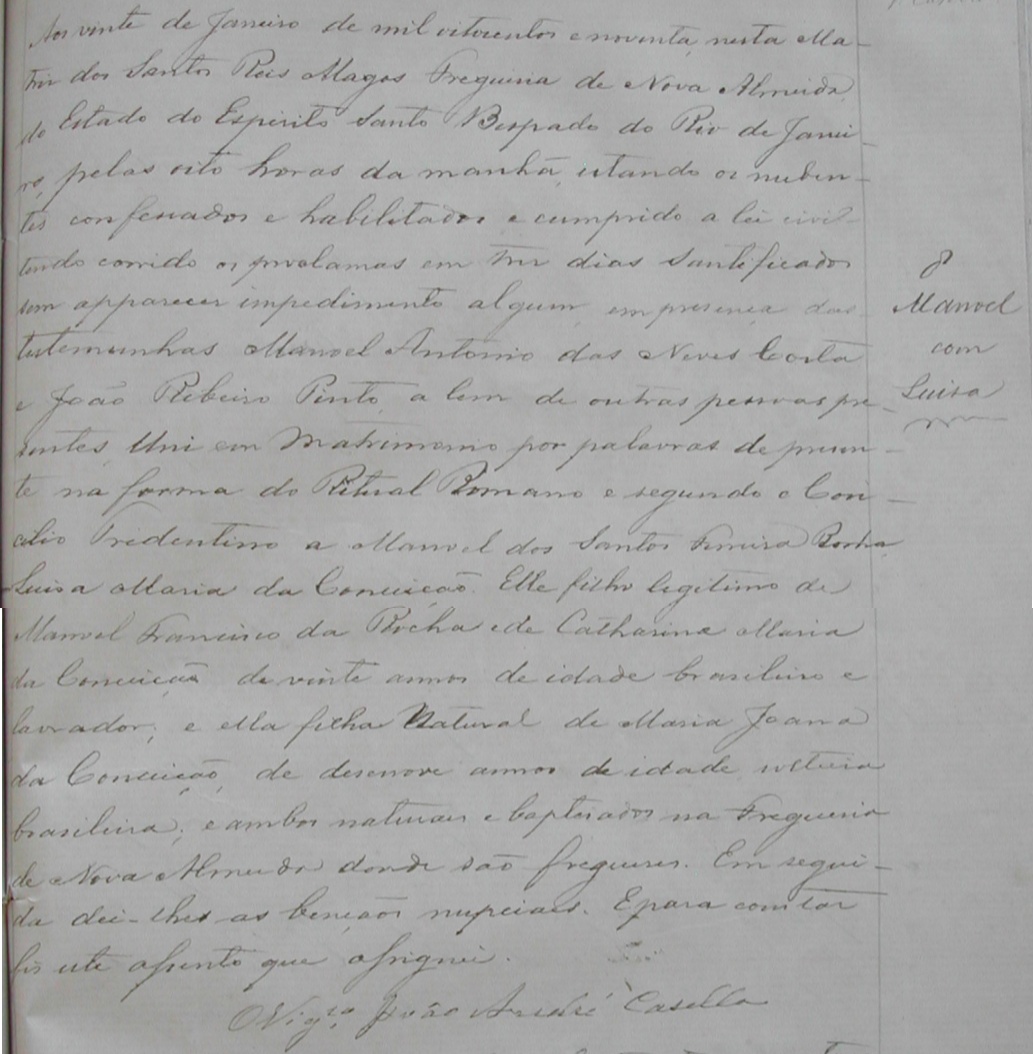 Aos vinte de Janeiro de mil oitocentos e noventa, nesta Ma-
triz dos Santos Reis Magos Freguesia de Nova Almeida,
do Estado do Espirito Santo Bispado do Rio de Janei-
ro, pelas oito horas da manhã, estando os nuben-
tes confessados e habilitados e cumprido a lei civil
tendo corrido os proclamas em tres dias santificados
sem apparecer impedimento algum, em presença das
testemunhas Manoel Antonio das Neves Costa
e João Ribeiro Pinto, a lem de outras pessoas pre-
sentes, Uni em Matrimonio por palavras de presen-
te na forma do Ritual Romano e segundo o Con-
cilio Tredentino a Manoel dos Santos Ferreira Rocha
Luisa Maria da Conceicão. Elle filho legitimo de
Manoel Francisco da Rocha e de Catharina Maria
da Conceicão de vinte annos de idade brasileiro e
lavrador; e ella filha Natural de Maria Joana
da Conceição, de desenove annos de idade, solteira
brasileira; e ambos naturaes e baptisados na Freguesia
de Nova Almeida donde são fregueses. Em segui-
da dei-lhes as bençãos nupciaes. E para constar
fis este assento que assignei.
O Vigro. João André Casella
8
Manoel
com
Luisa